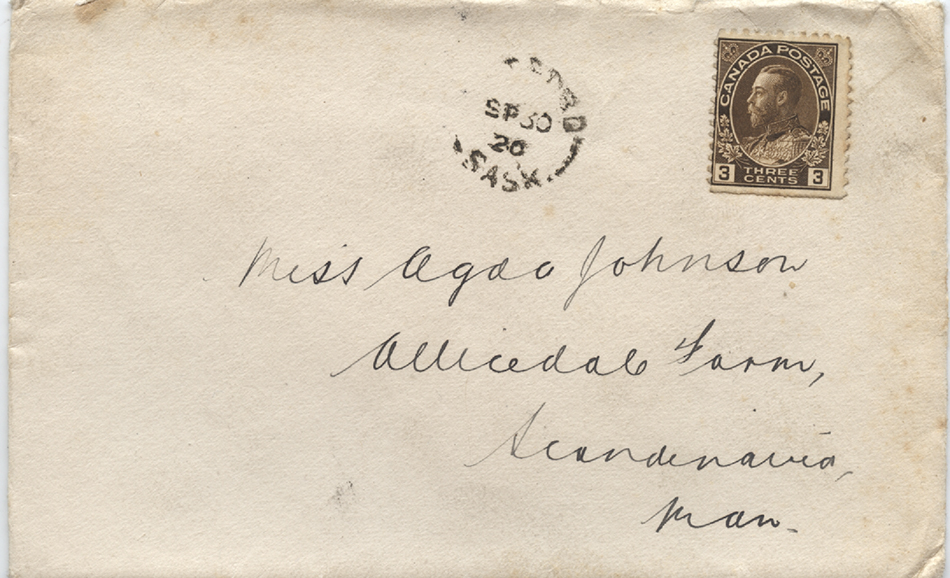 SP 30
20
SASK.
CANADA POSTAGE
3 THREE CENTS 3
Miss Agda Johnson
Allicedale Farm,
Scandinavia,
Man.